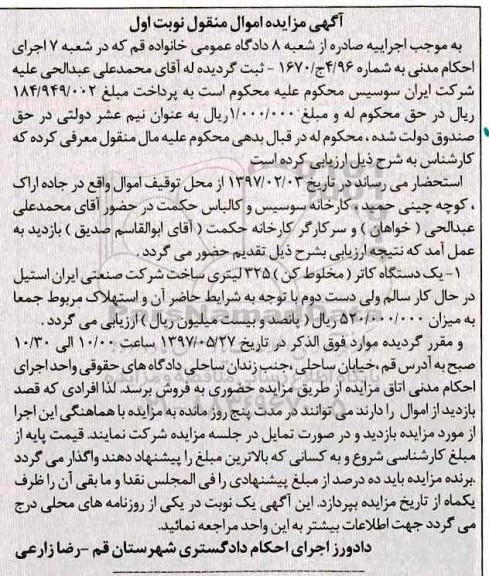 آگهی مزایده اموال منقول نوبت اول
به موجب اجراییه صادره از شعبه ۸ دادگاه عمومی خانواده قم که در شعبه ۷ اجرای
احکام مدنی به شماره ۴/۹۶ج/۱۶۷۰ - ثبت گردیده له آقای محمدعلی عبدالحی علیه
شرکت ایران سوسیس محکوم علیه محکوم است به پرداخت مبلغ ۱۸۴/۹۴۹/۰۰۲
ریال در حق محکوم له و مبلغ ۱/۰۰۰/۰۰۰ریال به عنوان نیم عشر دولتی در حق
صندوق دولت شده ، محکوم له در قبال بدهی محکوم علیه مال منقول معرفی کرده که
کارشناس به شرح ذیل ارزیابی کرده است
استحضار می رساند در تاریخ ۱۳۹۷/۰۲/۰۳ از محل توقیف اموال واقع در جاده اراک
، کوچه چینی حمید ، کارخانه سوسیس و کالباس حکمت در حضور آقای محمدعلی
عبدالحی ( خواهان ) و سرکارگر کارخانه حکمت ( آقای ابوالقاسم صدیق ) بازدید به
عمل آمد که نتیجه ارزیابی بشرح ذیل تقدیم حضور می گردد .
۱- یک دستگاه کاتر ( مخلوط کن ) ۳۲۵ لیتری ساخت شرکت صنعتی ایران استیل
در حال کار سالم ولی دست دوم با توجه به شرایط حاضر آن و استهلاک مربوط جمعا
به میزان ۵۲۰/۰۰۰/۰۰۰ ریال ( پانصد و بیست میلیون ریال ) ارزیابی می گردد .
و مقرر گردیده موارد فوق الذکر در تاریخ ۱۳۹۷/۰۵/۲۷ ساعت ۱۰/۰۰ الی ۱۰/۳۰
صبح به آدرس قم ،خیابان ساحلی ،جنب زندان ساحلی دادگاه های حقوقی واحد اجرای
احکام مدنی اتاق مزایده از طریق مزایده حضوری به فروش برسد. لذا افرادی که قصد
بازدید از اموال را دارند می توانند در مدت پنج روز مانده به مزایده با هماهنگی این اجرا
از مورد مزایده بازدید و در صورت تمایل در جلسه مزایده شرکت نمایند. قیمت پایه از
مبلغ کارشناسی شروع و به کسانی که بالاترین مبلغ را پیشنهاد دهند واگذار می گردد
.برنده مزایده باید ده درصد از مبلغ پیشنهادی را فی المجلس نقدا و ما بقی آن را ظرف
یکماه از تاریخ مزایده بپردازد. این آگهی یک نوبت در یکی از روزنامه های محلی درج
می گردد جهت اطلاعات بیشتر به این واحد مراجعه نمائید.
دادورز اجرای احکام دادگستری شهرستان قم -رضا زارعی